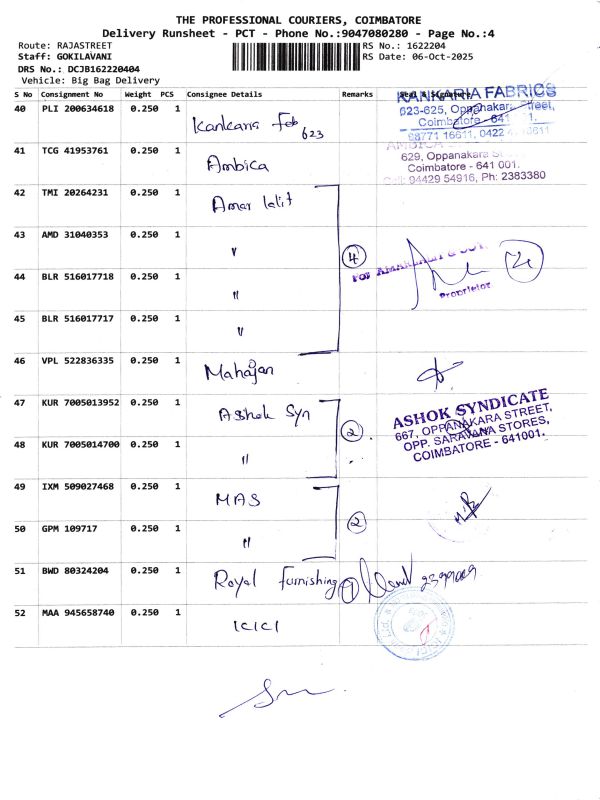 THE PROFESSIONAL COURIERS, COIMBATORE
Delivery Runsheet - PCT - Phone No.:9047080280 - Page No.:4
Route: RAJASTREET RS No.: 1622204
Staff: GOKILAVANI RS Date: 06-Oct-2025
DRS No.: DCJB162220404
Vehicle: Big Bag Delivery
S No Consignment No Weight PCS Consignee Details Remarks Seal & Signature
40 PLI 200634618 0.250 1 Kankaria Fab 623
KANKARIA FABRICS
623-625, Oppanakara Street,
Coimbatore - 641 1.
98771 16611, 0422
41 TCG 41953761 0.250 1 Ambica
AMBICA
629, Oppanakara St
Coimbatore - 641 001.
Cell: 94429 54916, Ph: 2383380
42 TMI 20264231 0.250 1 Amar lalit
43 AMD 31040353 0.250 1 " 4
For AMARLALIT & CO.
Proprietor
44 BLR 516017718 0.250 1 "
45 BLR 516017717 0.250 1 "
46 VPL 522836335 0.250 1 Mahajan
47 KUR 7005013952 0.250 1 Ashok Syn 2
ASHOK SYNDICATE
667, OPPANAKARA STREET,
OPP. SARAVANA STORES,
COIMBATORE - 641001.
48 KUR 7005014700 0.250 1 "
49 IXM 509027468 0.250 1 MAS 2
50 GPM 109717 0.250 1 "
51 BWD 80324204 0.250 1 Royal Furnishing 1
52 MAA 945658740 0.250 1 ICICI